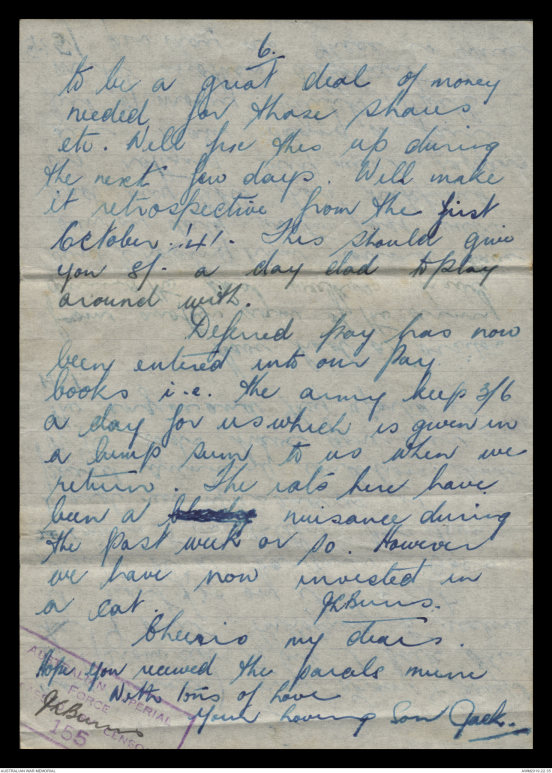 6.
to be a great deal of money
needed for those shares
etc. Will fix this up during
the next few days. Will make
it retrospective from the first
October '41. This should give
you 8/- a day dad to play
around with.
Deferred pay has now
been entered into our pay
books i.e. the army keep 3/6
a day for us which is given in
a lump sum to us when we
return. The rats here have
been a nuisance during
the past week or so. However
we have now invested in
a cat. JLBurns.
Cheerio my dears.
Hope you received the parcels mum
With tons of love
Your loving Son Jack.
JLBurns
AUSTRALIAN IMPERIAL
FORCE
155 CENSO
AUSTRALIAN WAR MEMORIAL